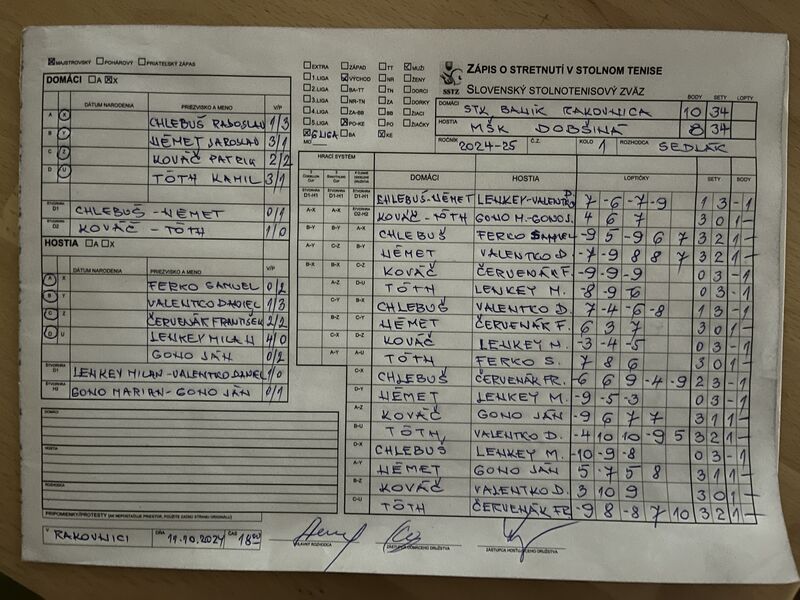 MAJSTROVSKÝ POHÁROVÝ PRIATEĽSKÝ ZÁPAS
DOMÁCI A X
DÁTUM NARODENIA PRIEZVISKO A MENO V/P
A X CHLEBUŠ RADOSLAV 1/3
B Y NÉMET JAROSLAV 3/1
C Z KOVÁČ PATRIK 2/2
D U TÓTH KAMIL 3/1
ŠTVORHRA D1 CHLEBUŠ - NÉMET 0/1
ŠTVORHRA D2 KOVÁČ - TÓTH 1/0
HOSTIA A X
DÁTUM NARODENIA PRIEZVISKO A MENO V/P
A X FERKO SAMUEL 0/2
B Y VALENTKO DANIEL 1/3
C Z ČERVENÁK FRANTIŠEK 2/2
D U LENKEY MILAN 4/0
GONO JÁN 0/2
LENKEY MILAN - VALENTKO DANIEL 1/0
GONO MARIAN - GONO JÁN 0/1
DOMÁCI
HOSTIA
ROZHODCA
PRIPOMIENKY/PROTESTY (AK NEPOSTAČUJE PRIESTOR, POUŽITE ZADNÚ STRANU ORIGINÁLU)
V RAKOVNICI DŇA 19.10.2024 ČAS 18:00
HLAVNÝ ROZHODCA ZÁSTUPCA DOMÁCEHO DRUŽSTVA ZÁSTUPCA HOSŤUJÚCEHO DRUŽSTVA
EXTRA ZÁPAD TT MUŽI
1.LIGA VÝCHOD NR ŽENY
2.LIGA BA-TT TN DORCI
3.LIGA NR-TN ZA DORKY
4.LIGA ZA-BB BB ŽIACI
5.LIGA PO-KE PO ŽIAČKY
6 LIGA BA KE
MO
SSTZ
ZÁPIS O STRETNUTÍ V STOLNOM TENISE
SLOVENSKÝ STOLNOTENISOVÝ ZVÄZ
BODY SETY LOPTY
DOMÁCI STK BANÍK RAKOVNICA 10 34
HOSTIA MŠK DOBŠINÁ 8 34
ROČNÍK 2024-25 Č.Z. KOLO 1 ROZHODCA SEDLÁK
HRACÍ SYSTÉM
DOMÁCI HOSTIA LOPTIČKY SETY BODY
CHLEBUŠ-NÉMET LENKEY-VALENTKO D. 7 -6 -7 -9 1 3 - 1
KOVÁČ - TÓTH GONO M.-GONO J. 4 6 7 3 0 1 -
CHLEBUŠ FERKO SAMUEL -9 5 -9 6 7 3 2 1 -
NÉMET VALENTKO D. -7 -9 8 8 7 3 2 1 -
KOVÁČ ČERVENÁK F. -9 -9 -9 0 3 - 1
TÓTH LENKEY M. -8 -9 -6 0 3 - 1
CHLEBUŠ VALENTKO D. 7 -4 -6 -8 1 3 - 1
NÉMET ČERVENÁK F. 6 3 7 3 0 1 -
KOVÁČ LENKEY M. -3 -4 -5 0 3 - 1
TÓTH FERKO S. 7 8 6 3 0 1 -
CHLEBUŠ ČERVENÁK FR. -6 6 9 -4 -9 2 3 - 1
NÉMET LENKEY M. -9 -5 -3 0 3 - 1
KOVÁČ GONO JÁN -9 6 7 7 3 1 1 -
TÓTH VALENTKO D. -4 10 10 -9 5 3 2 1 -
CHLEBUŠ LENKEY M. -10 -9 -8 0 3 - 1
NÉMET GONO JÁN 5 -7 5 8 3 1 1 -
KOVÁČ VALENTKO D. 3 10 9 3 0 1 -
TÓTH ČERVENÁK FR. -9 8 -8 7 10 3 2 1 -